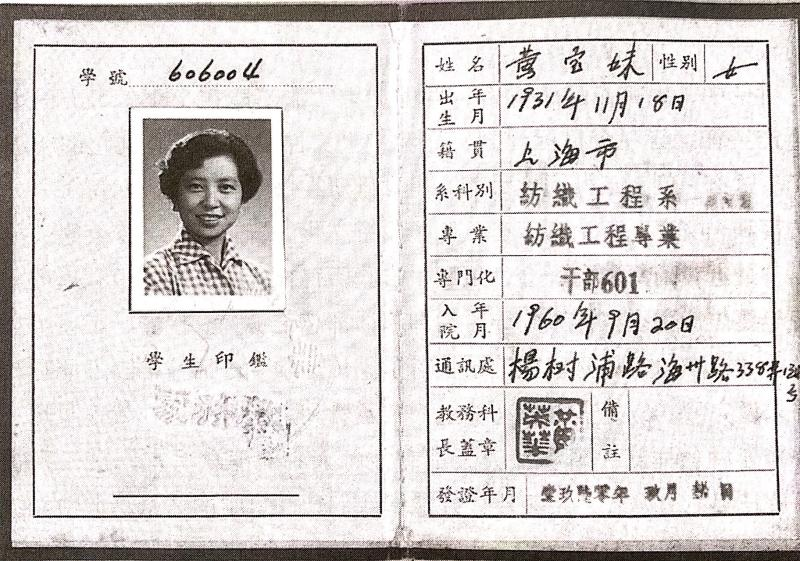 學號 606004
學生印鑑
姓名 黄宝妹 性別 女
出生年月 1931年11月18日
籍貫 上海市
系科別 紡織工程系
專業 紡織工程專業
專門化 干部601
入院年月 1960年9月20日
通訊處 楊树浦路海州路338弄
教務科長蓋章 備註
發證年月